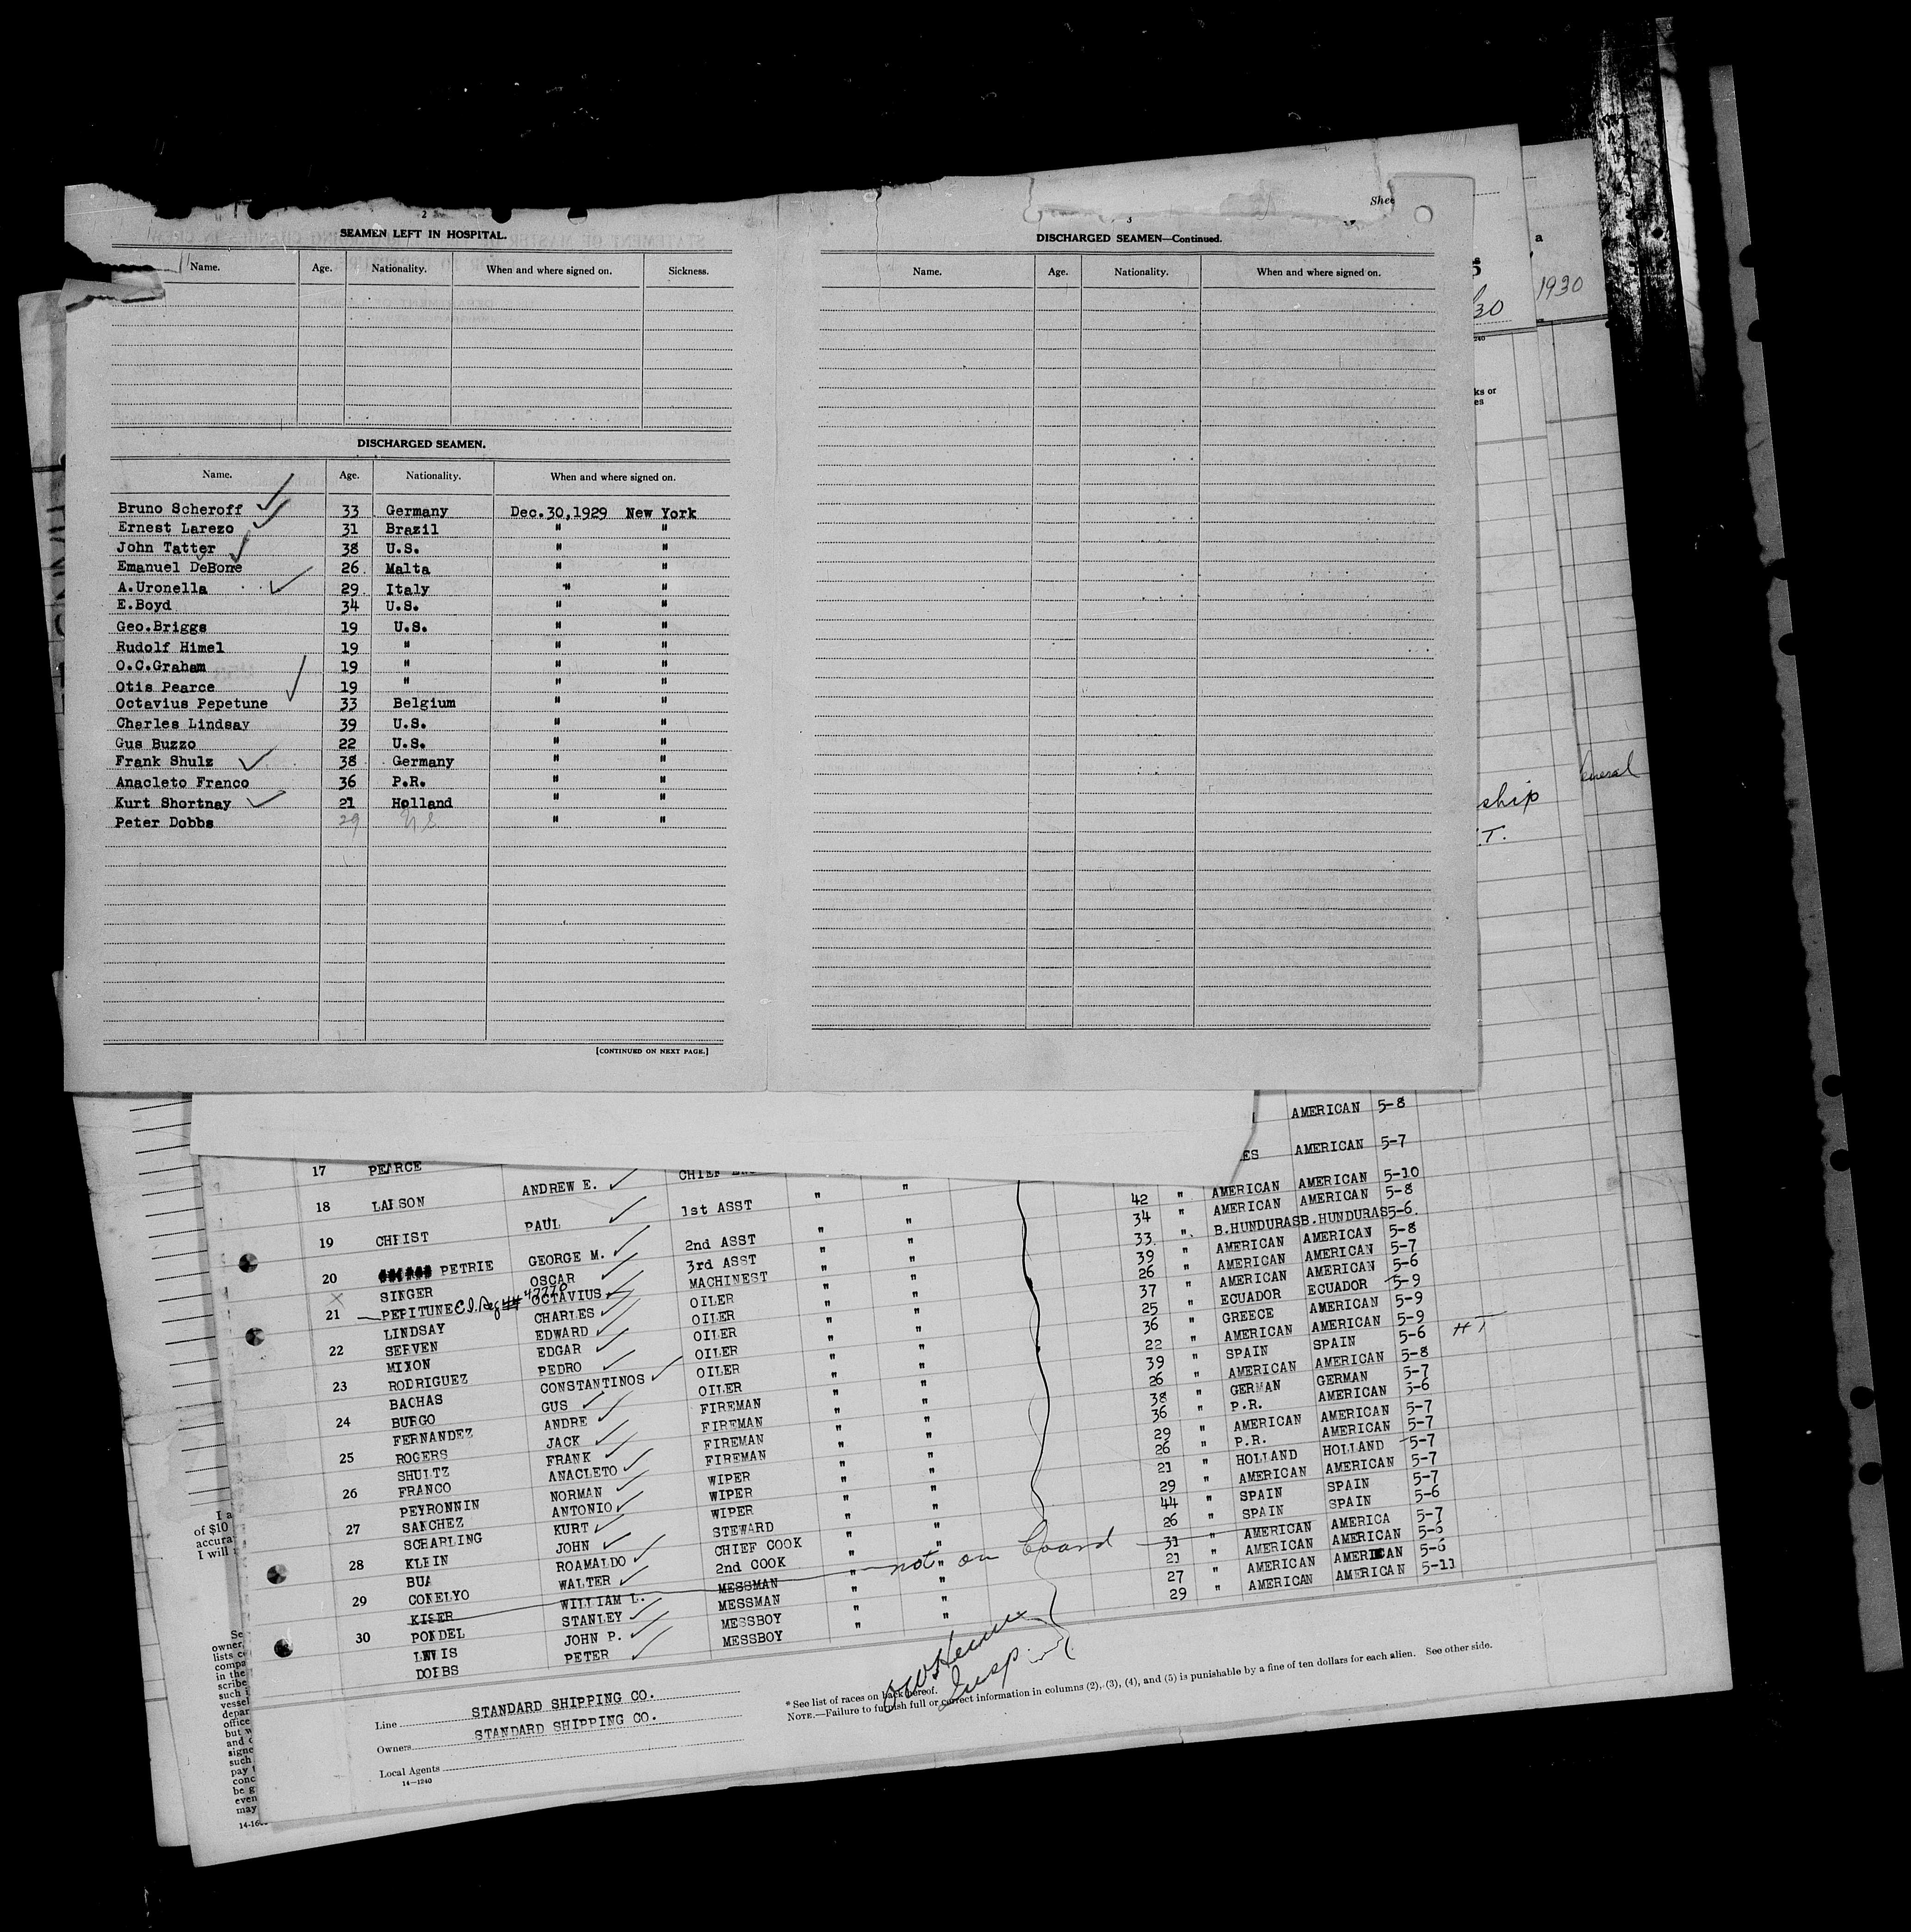 2
SEAMEN LEFT IN HOSPITAL.
Name. Age. Nationality. When and where signed on. Sickness.
DISCHARGED SEAMEN.
Name. Age. Nationality. When and where signed on.
Bruno Scheroff 33 Germany Dec.30,1929 New York
Ernest Larezo 31 Brazil " "
John Tatter 38 U.S. " "
Emanuel DeBone 26 Malta " "
A.Uronella 29 Italy " "
E.Boyd 34 U.S. " "
Geo.Briggs 19 U.S. " "
Rudolf Himel 19 " " "
O.C.Graham 19 " " "
Otis Pearce 19 " " "
Octavius Pepetune 33 Belgium " "
Charles Lindsay 39 U.S. " "
Gus Buzzo 22 U.S. " "
Frank Shulz 38 Germany " "
Anacleto Franco 36 P.R. " "
Kurt Shortnay 21 Holland " "
Peter Dobbs 29 U.S. " "
[CONTINUED ON NEXT PAGE.]
Shee
3
DISCHARGED SEAMEN—Continued.
Name. Age. Nationality. When and where signed on.
a
5
1930
30
ks or
es
ship
T.
General
AMERICAN 5-8
ES AMERICAN 5-7
17 PEARCE
ANDREW E. CHIEF
18 LARSON
PAUL 1st ASST " "
19 CHRIST
GEORGE M. 2nd ASST " "
20 PETRIE OSCAR 3rd ASST " "
SINGER OCTAVIUS MACHINEST " "
21 PEPITUNE CHARLES OILER " "
LINDSAY EDWARD OILER " "
22 SERVEN EDGAR OILER " "
MIXON PEDRO OILER " "
23 RODRIGUEZ CONSTANTINOS OILER " "
BACHAS GUS OILER " "
24 BURGO ANDRE FIREMAN " "
FERNANDEZ JACK FIREMAN " "
25 ROGERS FRANK FIREMAN " "
SHULTZ ANACLETO FIREMAN " "
26 FRANCO NORMAN WIPER " "
PEYRONNIN ANTONIO WIPER " "
27 SANCHEZ KURT WIPER " "
SCHARLING JOHN STEWARD " "
28 KLEIN ROAMALDO CHIEF COOK " "
BUA WALTER 2nd COOK " "
29 CONELYO WILLIAM L. MESSMAN " not on board
KISER STANLEY MESSMAN " "
30 PONDEL JOHN P. MESSBOY " "
LEWIS PETER MESSBOY " "
DOBBS
42 " AMERICAN AMERICAN 5-10
34 " AMERICAN AMERICAN 5-8
33 " B.HUNDURAS B.HUNDURAS 5-6
39 " AMERICAN AMERICAN 5-8
26 " AMERICAN AMERICAN 5-7
37 " AMERICAN AMERICAN 5-6
25 " ECUADOR ECUADOR 5-9
36 " GREECE AMERICAN 5-9
22 " AMERICAN AMERICAN 5-9
39 " SPAIN SPAIN 5-6 HT
26 " AMERICAN AMERICAN 5-8
38 " GERMAN GERMAN 5-7
36 " P.R. AMERICAN 5-6
29 " AMERICAN AMERICAN 5-7
26 " P.R. AMERICAN 5-7
21 " HOLLAND HOLLAND 5-7
29 " AMERICAN AMERICAN 5-7
44 " SPAIN SPAIN 5-7
26 " SPAIN SPAIN 5-6
31 " AMERICAN AMERICA 5-7
21 " AMERICAN AMERICAN 5-6
27 " AMERICAN AMERICAN 5-6
29 " AMERICAN AMERICAN 5-11
Insp.
Line STANDARD SHIPPING CO.
Owners STANDARD SHIPPING CO.
Local Agents
14—1240
* See list of races on back hereof.
NOTE.—Failure to furnish full or correct information in columns (2), (3), (4), and (5) is punishable by a fine of ten dollars for each alien. See other side.
I a
of $10
accura
I will
Se
owner,
lists c
compa
in the
scribe
such i
vessel
depar
office
but w
and c
signe
such
pay t
conc
be g
even
may